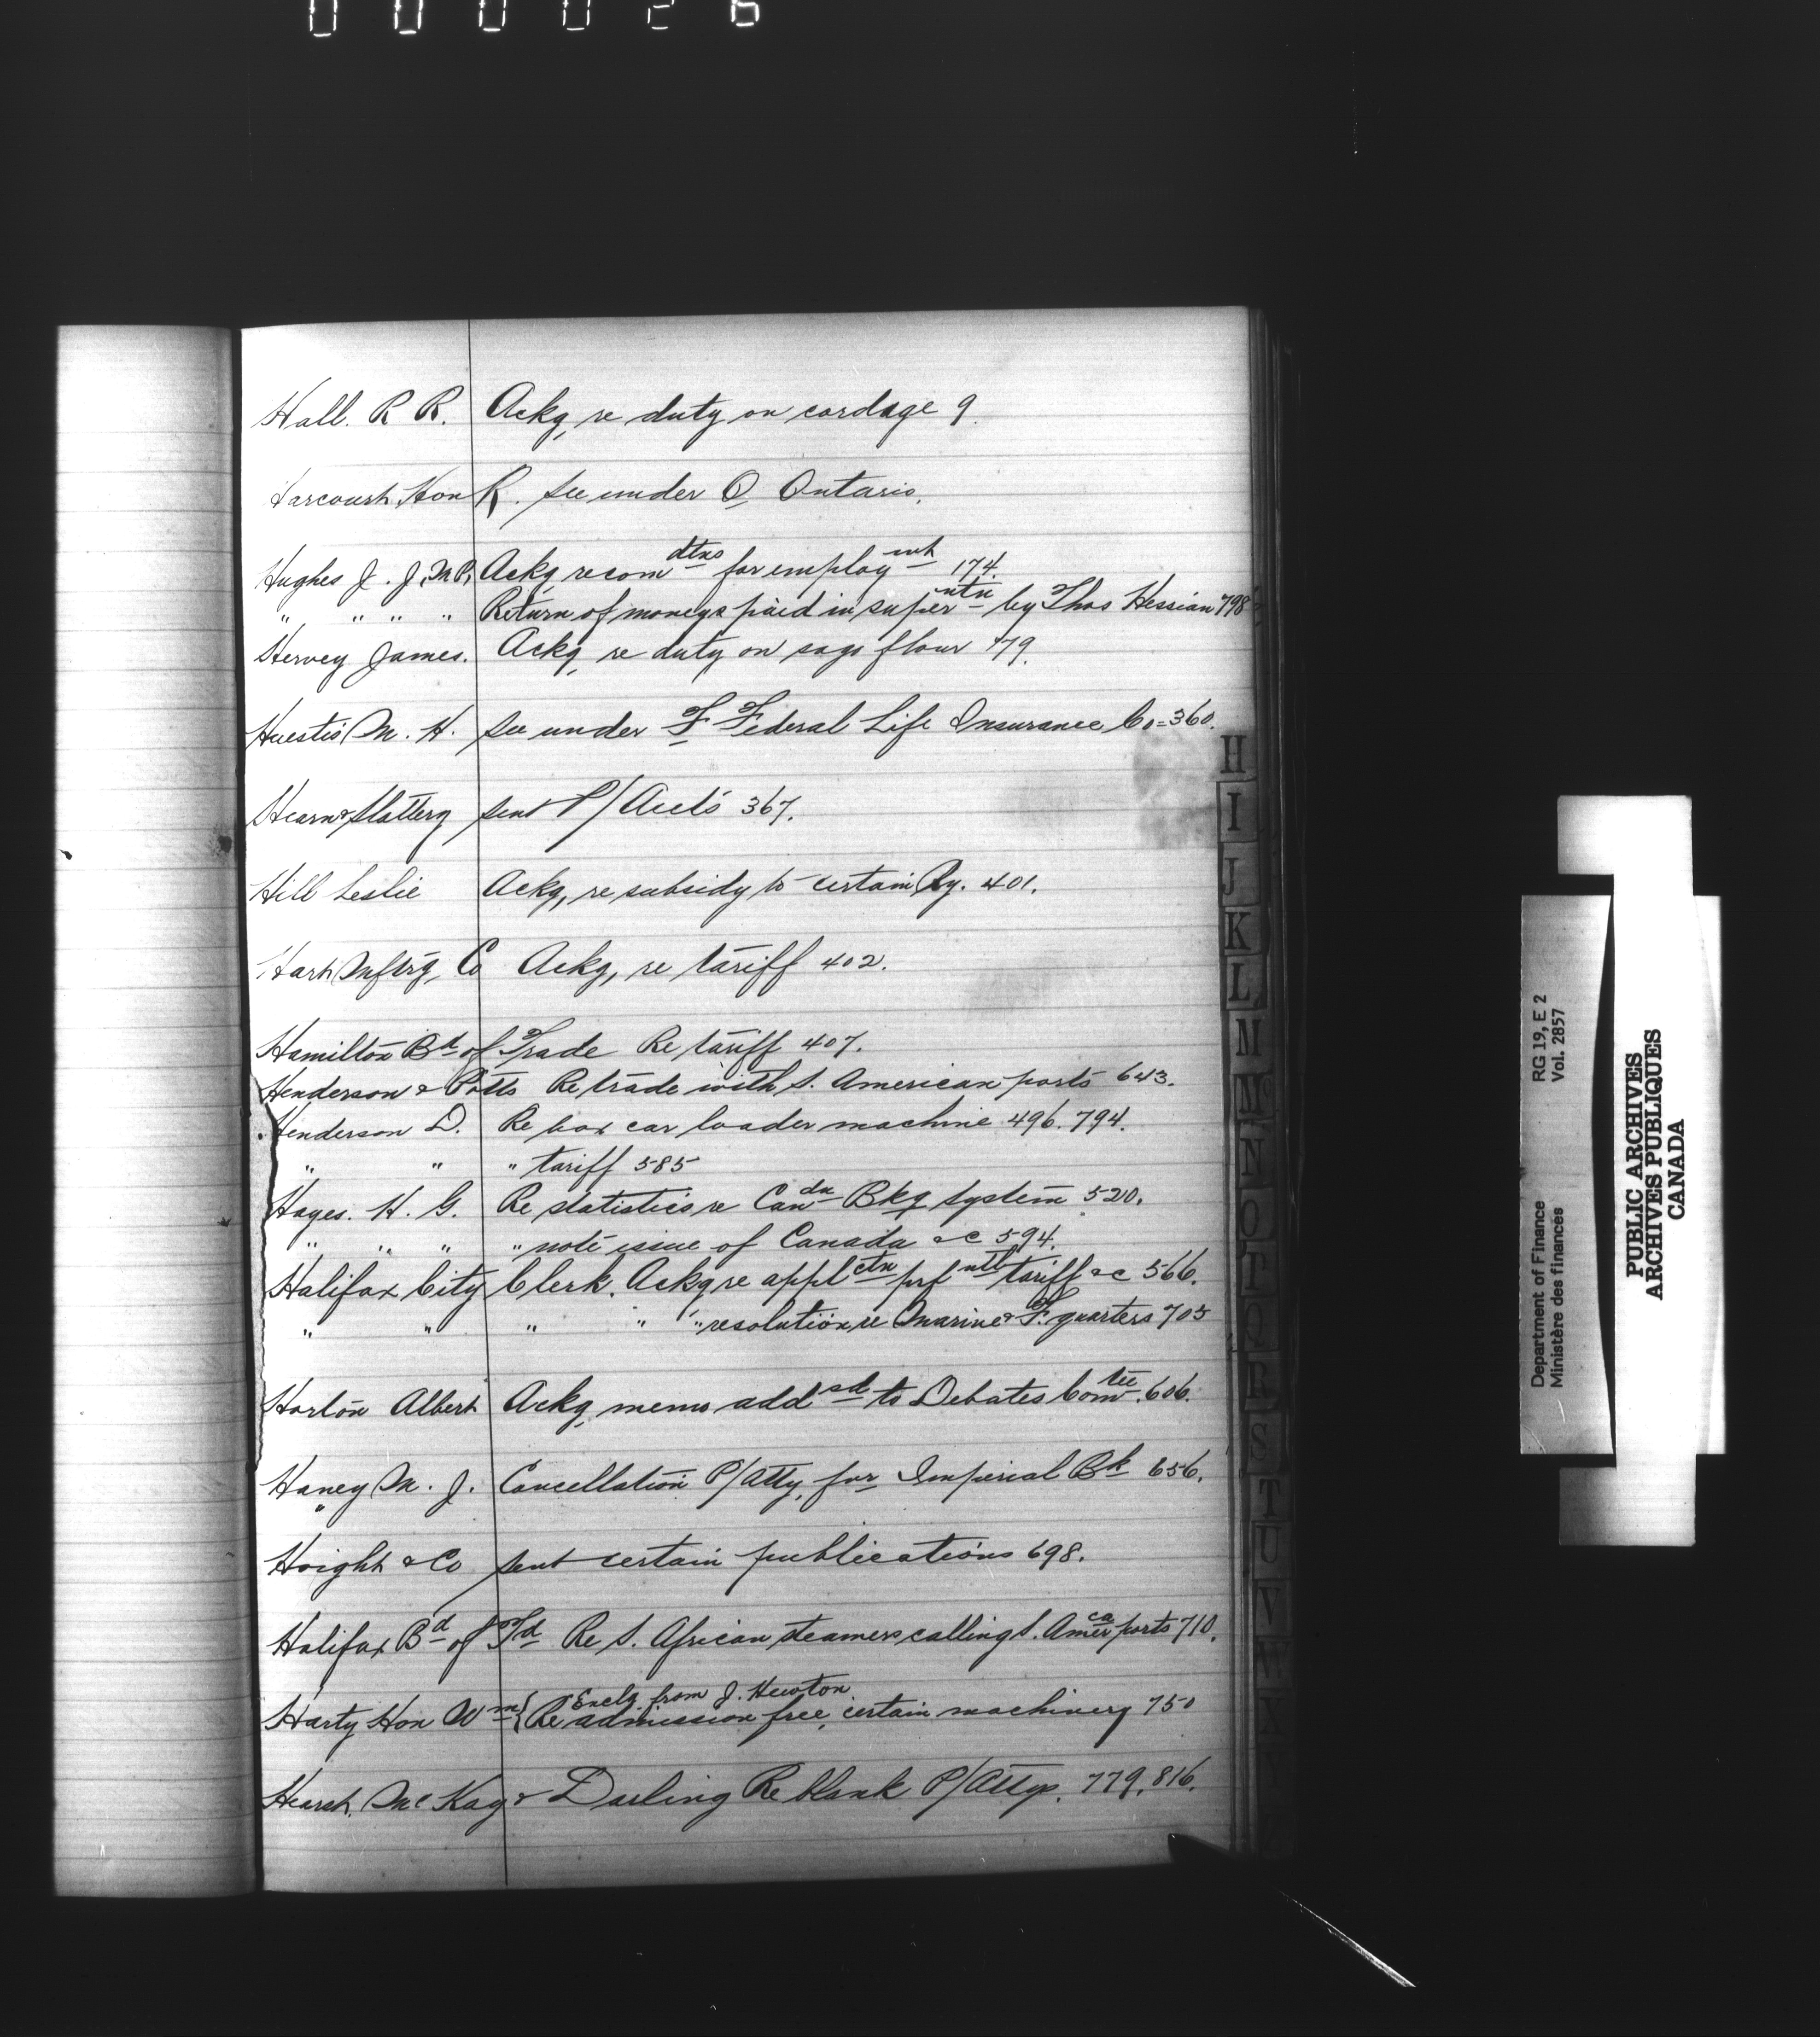 000026
Hall. R R. Ackg, re duty on cordage 9.
Harcourt, Hon R. See under O Ontario.
Hughes J. J, M.P, Ackg recom dtns for employ mt 174.
" " " " Return of moneys paid in super ntn by Thos Hessian 798
Hervey James. Ackg, re duty on sago flour 179.
Huestis M. H. See under F Federal Life Insurance Co = 360.
Hearn & Slattery Sent P/Accts 367.
Hill Leslie Ackg, re subsidy to certain Ry. 401.
Hart Mftrg, Co Ackg, re tariff 402.
Hamilton Bd of Trade Re tariff 407.
Henderson & Potts Re trade with S. American ports 643.
Henderson D. Re box car loader machine 496. 794.
" " " tariff 585
Hayes. H. G. Re statistics re Can dn Bkg system 520.
" " " " note issue of Canada &c 594.
Halifax City Clerk. Ackg re appl ctn prf ntl tariff &c 566.
" " " " " resolution re Marine & F. quarters 705
Horton Albert Ackg, memo add sd to Debates Com tee. 606.
Haney M. J. Cancellation P/Atty, for Imperial Bk 656.
Hoight & Co Sent certain publications 698.
Halifax Bd of Td Re S. African steamers calling S. Amer ca ports 710.
Encls from J. Hewton
Harty Hon Wm { Re admission free, certain machinery 750
Hearst, McKay & Darling Re blank P/Attys. 779, 816.
H
I
J
K
L
M
Mc
N
O
P
Q
R
S
T
U
V
W
RG 19, E 2
Vol. 2857
Department of Finance
Ministère des finances
PUBLIC ARCHIVES
ARCHIVES PUBLIQUES
CANADA